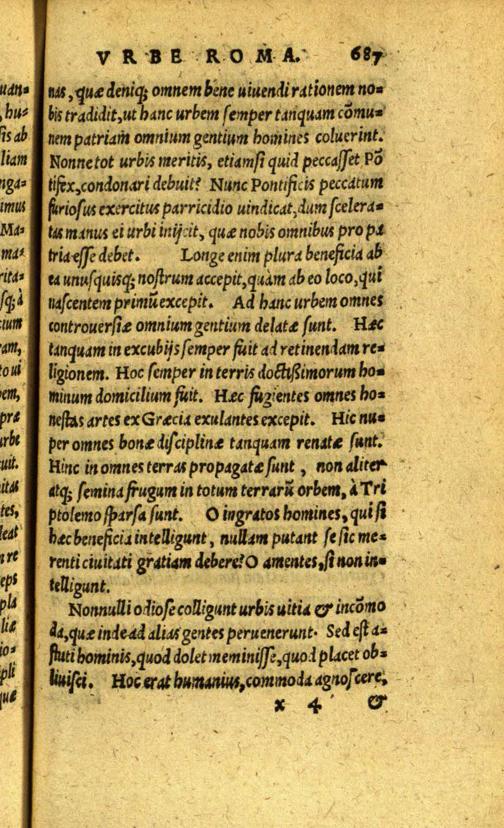 VRBE ROMA. 687
nas, quæ deniq; omnem bene uiuendi rationem no=
bis tradidit, ut hanc urbem semper tanquam cõmu=
nem patriam omnium gentium homines coluerint.
Nonne tot urbis meritis, etiamsi quid peccasset Põ
tifex, condonari debuit? Nunc Pontificis peccatum
furiosus exercitus parricidio uindicat, dum scelera=
tas manus ei urbi inijcit, quæ nobis omnibus pro pa
tria esse debet. Longe enim plura beneficia ab
ea unusquisq; nostrum accepit, quàm ab eo loco, qui
nascentem primũ excepit. Ad hanc urbem omnes
controuersiæ omnium gentium delatæ sunt. Hæc
tanquam in excubijs semper fuit ad retinendam re=
ligionem. Hoc semper in terris doctißimorum ho=
minum domicilium fuit. Hæc fugientes omnes ho=
nestas artes ex Græcia exulantes excepit. Hic nu=
per omnes bonæ disciplinæ tanquam renatæ sunt.
Hinc in omnes terras propagatæ sunt, non aliter
atq; semina frugum in totum terrarũ orbem, à Tri
ptolemo sparsa sunt. O ingratos homines, qui si
hæc beneficia intelligunt, nullam putant se sic me=
renti ciuitati gratiam debere? O amentes, si non in=
telligunt.
Nonnulli odiose colligunt urbis uitia & incõmo
da, quæ inde ad alias gentes peruenerunt. Sed est a=
stuti hominis, quod dolet meminisse, quod placet ob=
liuisci. Hoc erat humanius, commoda agnoscere,
x 4 &